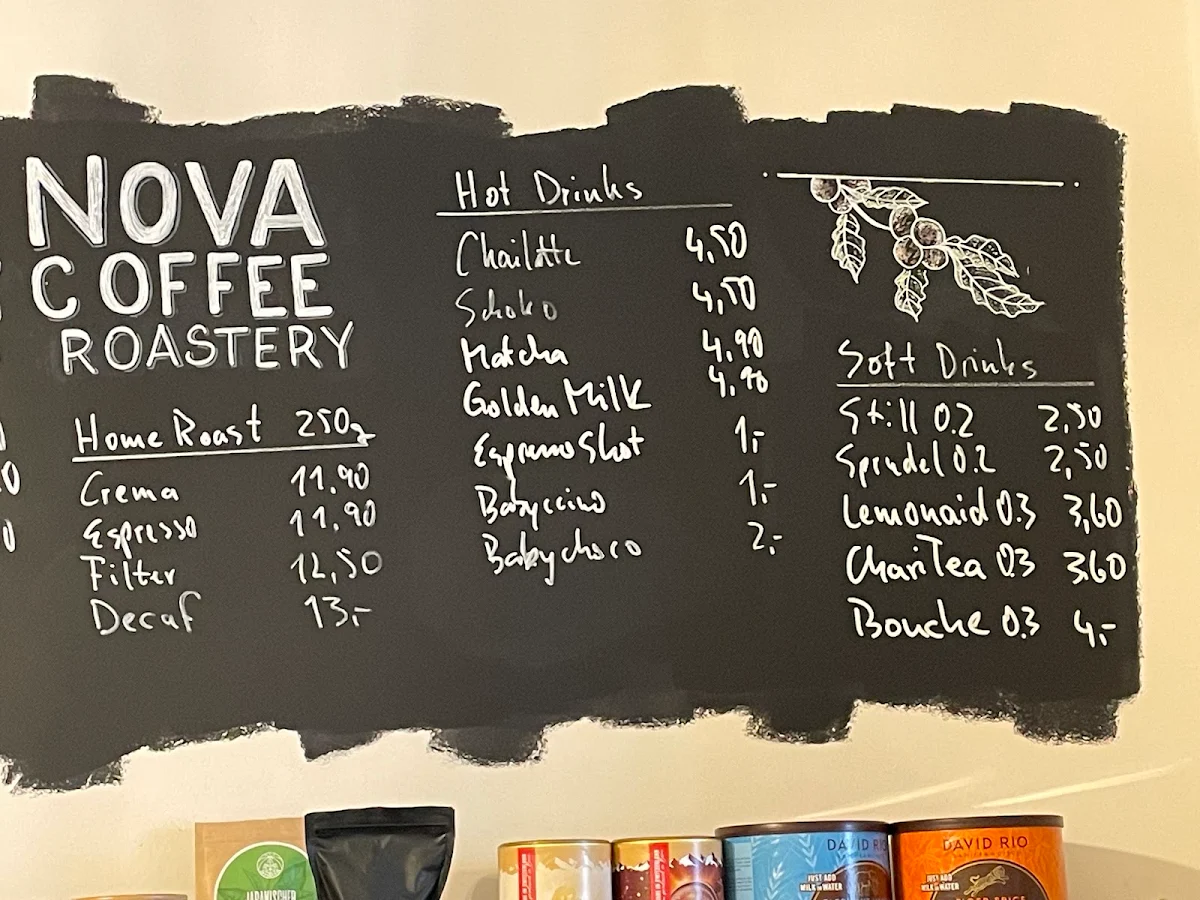 NOVA
COFFEE
ROASTERY
Home Roast 250g
Crema 11,90
Espresso 11,90
Filter 12,50
Decaf 13,-
Hot Drinks
Chailatte 4,50
Schoko 4,50
Matcha 4,90
Golden Milk 4,90
Espresso Shot 1,-
Babyccino 1,-
Babychoco 2,-
Soft Drinks
Still 0.2 2,50
Sprudel 0.2 2,50
Lemonaid 0.3 3,60
ChariTea 0.3 3,60
Bouche 0.3 4,-
JAPANISCHER
DAVID RIO
JUST ADD
MILK OR WATER
DAVID RIO
SAN FRANCISCO
JUST ADD
MILK OR WATER
TIGER SPICE